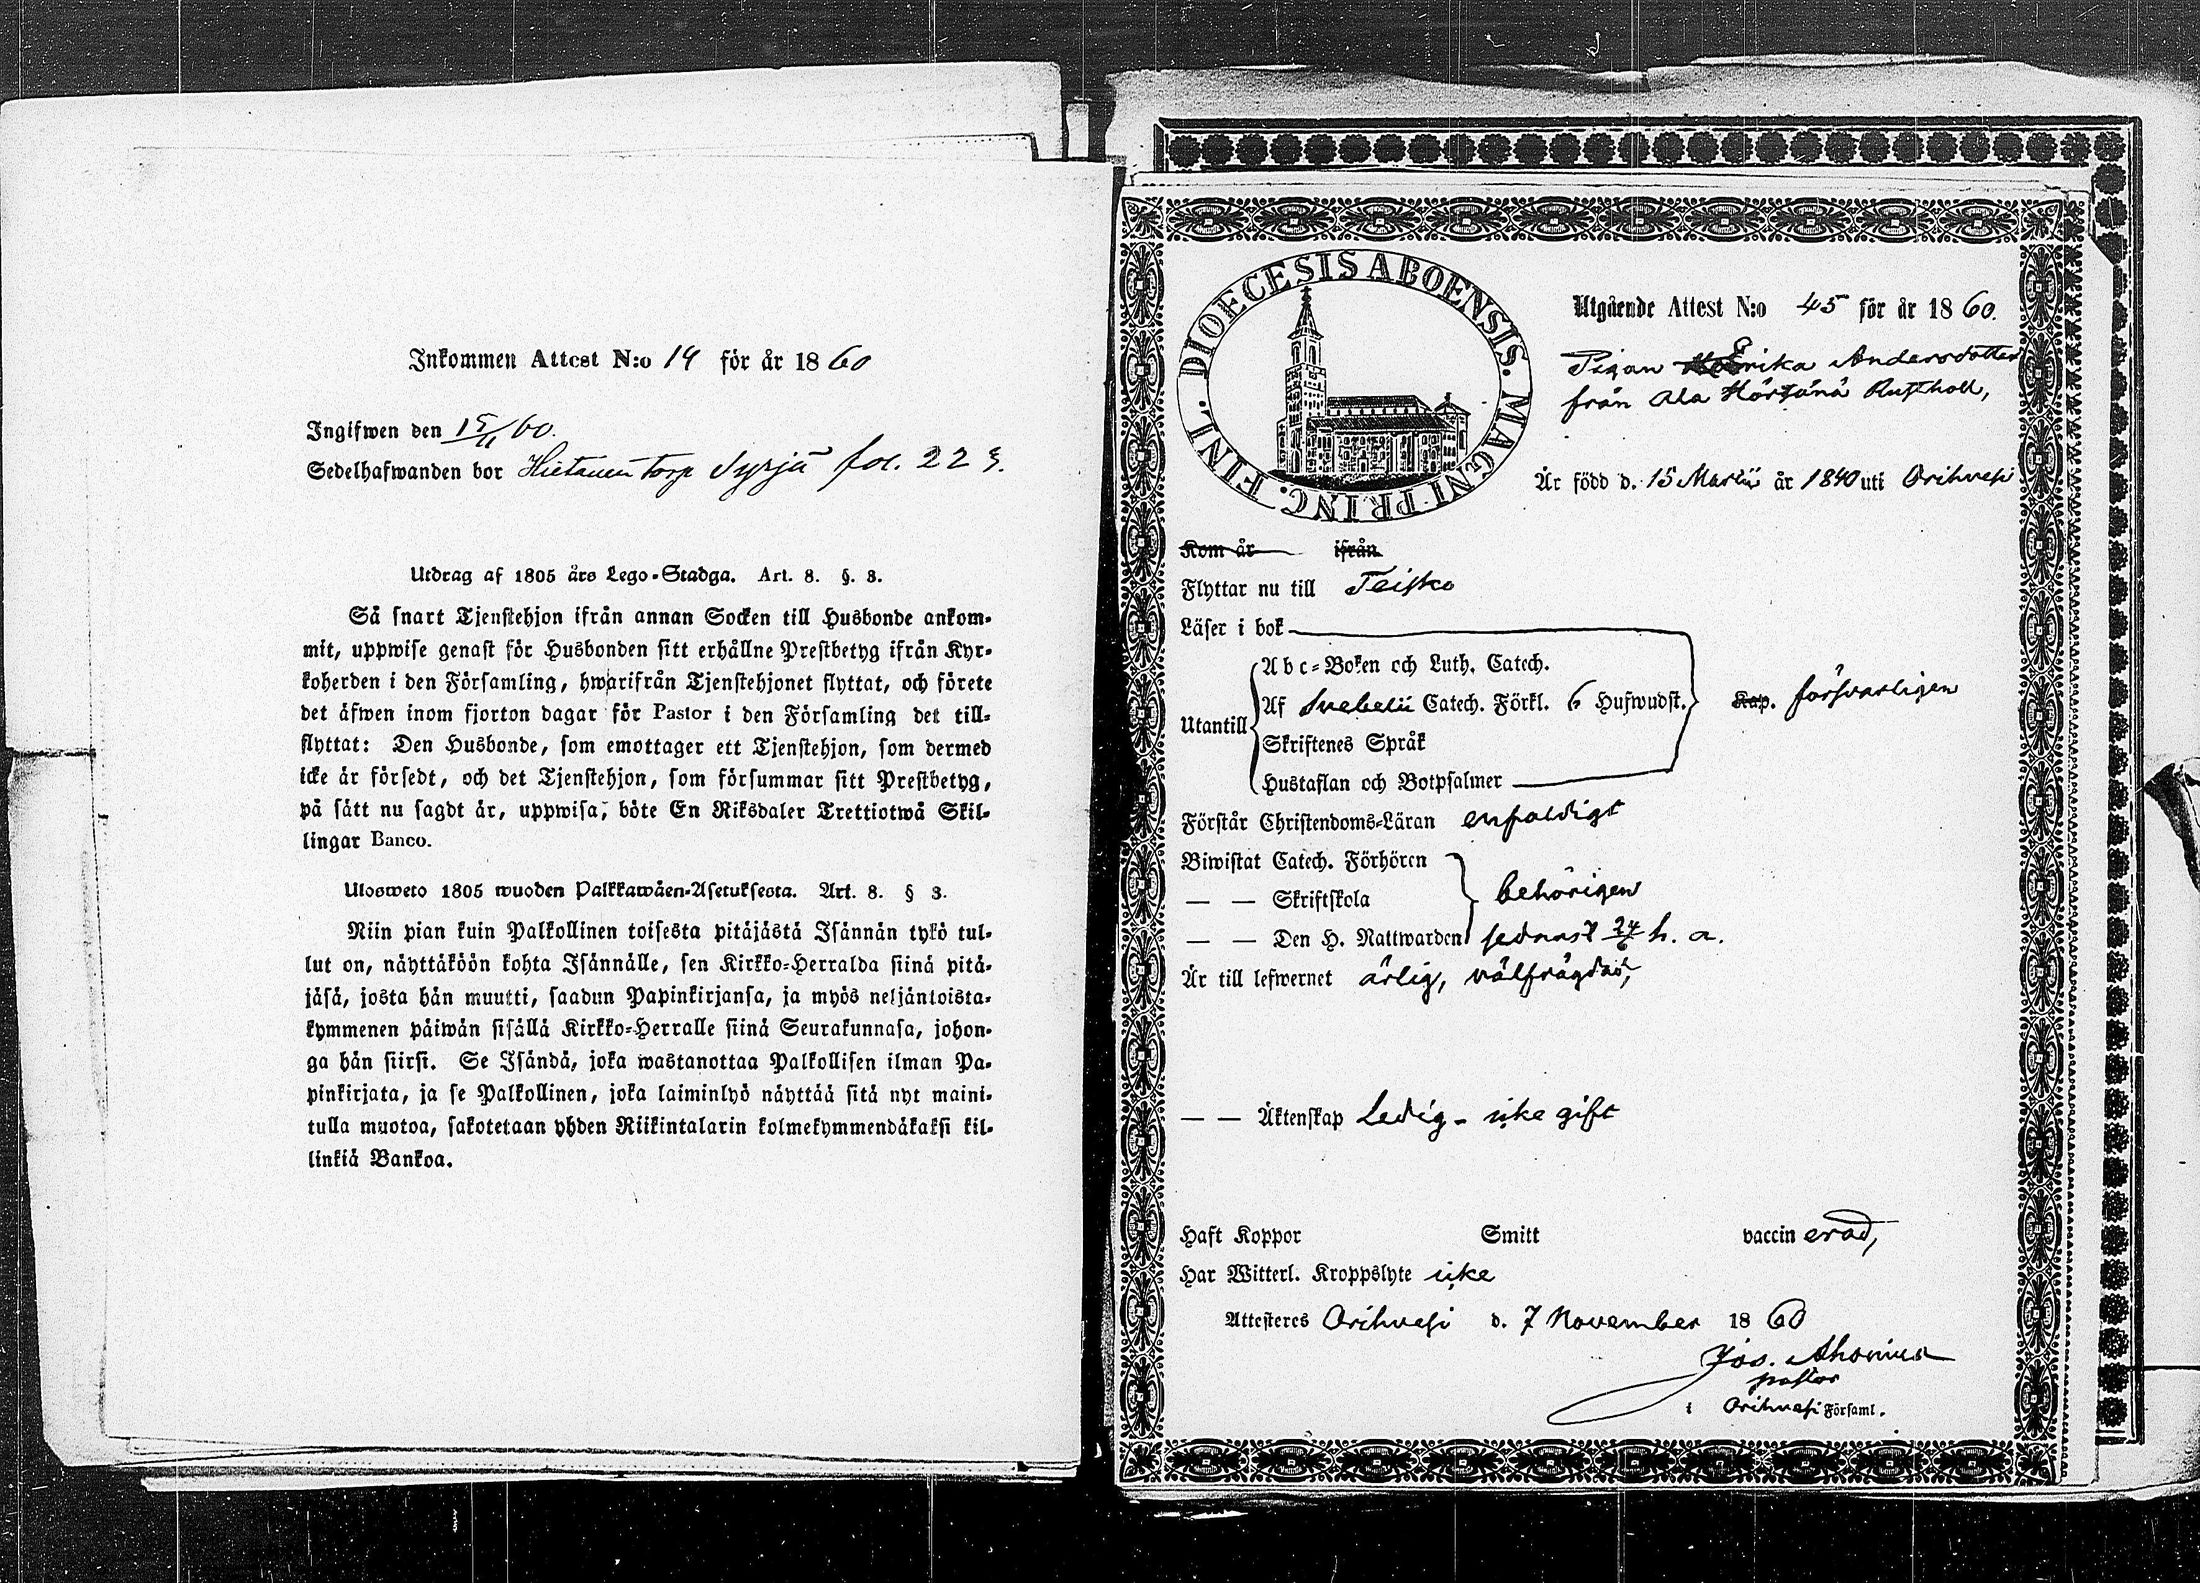 Inkommen Attest N:o 14 för år 1860
Ingifwen den 15/11 60.
Sedelhafwanden bor Hietanen torp Syrjä fol. 223.
Utdrag af 1805 års Lego-Stadga. Art. 8. §. 3.
Så snart Tjenstehjon ifrån annan Socken till Husbonde ankom-
mit, uppwise genast för Husbonden sitt erhållne Prestbetyg ifrån Kyr-
koherden i den Församling, hwarifrån Tjenstehjonet flyttat, och förete
det äfwen inom fjorton dagar för Pastor i den Församling det till-
flyttat: Den Husbonde, som emottager ett Tjenstehjon, som dermed
icke är försedt, och det Tjenstehjon, som försummar sitt Prestbetyg,
på sätt nu sagdt är, uppwisa, böte En Riksdaler Trettiotwå Skil-
lingar Banco.
Ulosweto 1805 wuoden Palkkawäen-Asetuksesta. Art. 8. § 3.
Niin pian kuin Palkollinen toisesta pitäjästä Isännän tykö tul-
lut on, näyttäköön kohta Isännälle, sen Kirkko-Herralda siinä pitä-
jäsä, josta hän muutti, saadun Papinkirjansa, ja myös neljäntoista-
kymmenen päiwän sisällä Kirkko-Herralle siinä Seurakunnasa, johon-
ga hän siirsi. Se Isändä, joka wastanottaa Palkollisen ilman Pa-
pinkirjata, ja se Palkollinen, joka laiminlyö näyttää sitä nyt maini-
tulla muotoa, sakotetaan yhden Riikintalarin kolmekymmendäkaksi kil-
linkiä Bankoa.
DIOECESIS ABOENSIS. MAGNI PRINC. FINL.
Utgående Attest N:o 45 för år 1860.
Pigan Erika Andersdotter
från Ala Hörtänä Rusthåll,
Är född d. 15 Martii år 1840 uti Orihvesi
Kom år ifrån
Flyttar nu till Teisko
Läser i bok
Abc-Boken och Luth. Catech.
Utantill Af Svebelii Catech. Förkl. 6 Hufwudst. Kap. försvarligen
Skriftenes Språk
Hustaflan och Botpsalmer
Förstår Christendoms-Läran enfaldigt
Biwistat Catech. Förhören
— — Skriftskola behörigen
— — Den H. Nattwarden sednast 24/6 h. a.
Är till lefwernet ärlig, välfrägdad,
— — Äktenskap Ledig - icke gift
Haft Koppor Smitt vaccinerad,
Har Witterl. Kroppslyte icke
Attesteres Orihvesi d. 7 November 1860
Jos. Ahonius
pastor
i Orihvesi Församl.